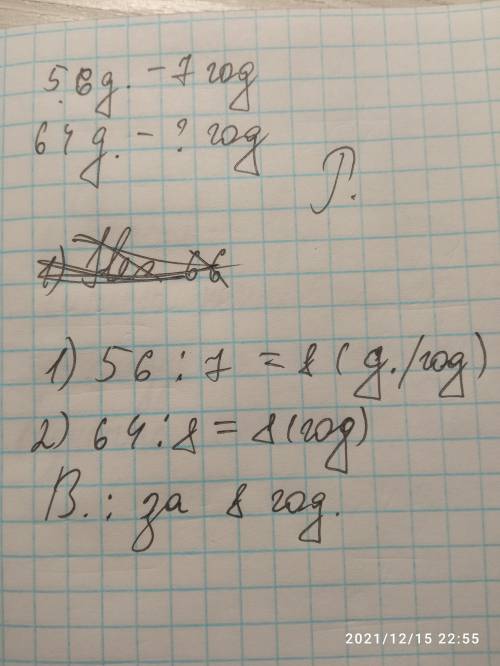 56д. - 7 год
64д. - ? год
Р.
1) 56 : 7 = 8 ( д./год)
2) 64 : 8 = 8 (год)
В. : за 8 год.
2021/12/15 22:55